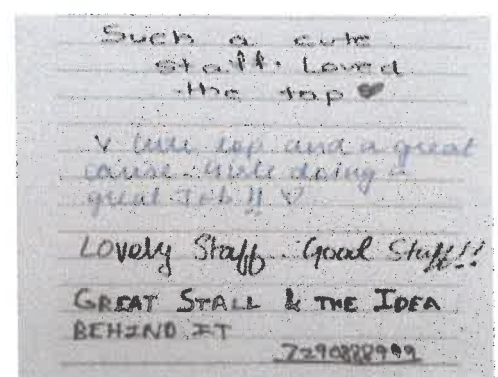 Such a cute
staff. Loved
the top ♥
V cute top and a great
cause. Girls doing a
great Job !! ♡
Lovely Staff.. Good Stuff!!
GREAT STALL & THE IDEA
BEHIND IT
7290888999